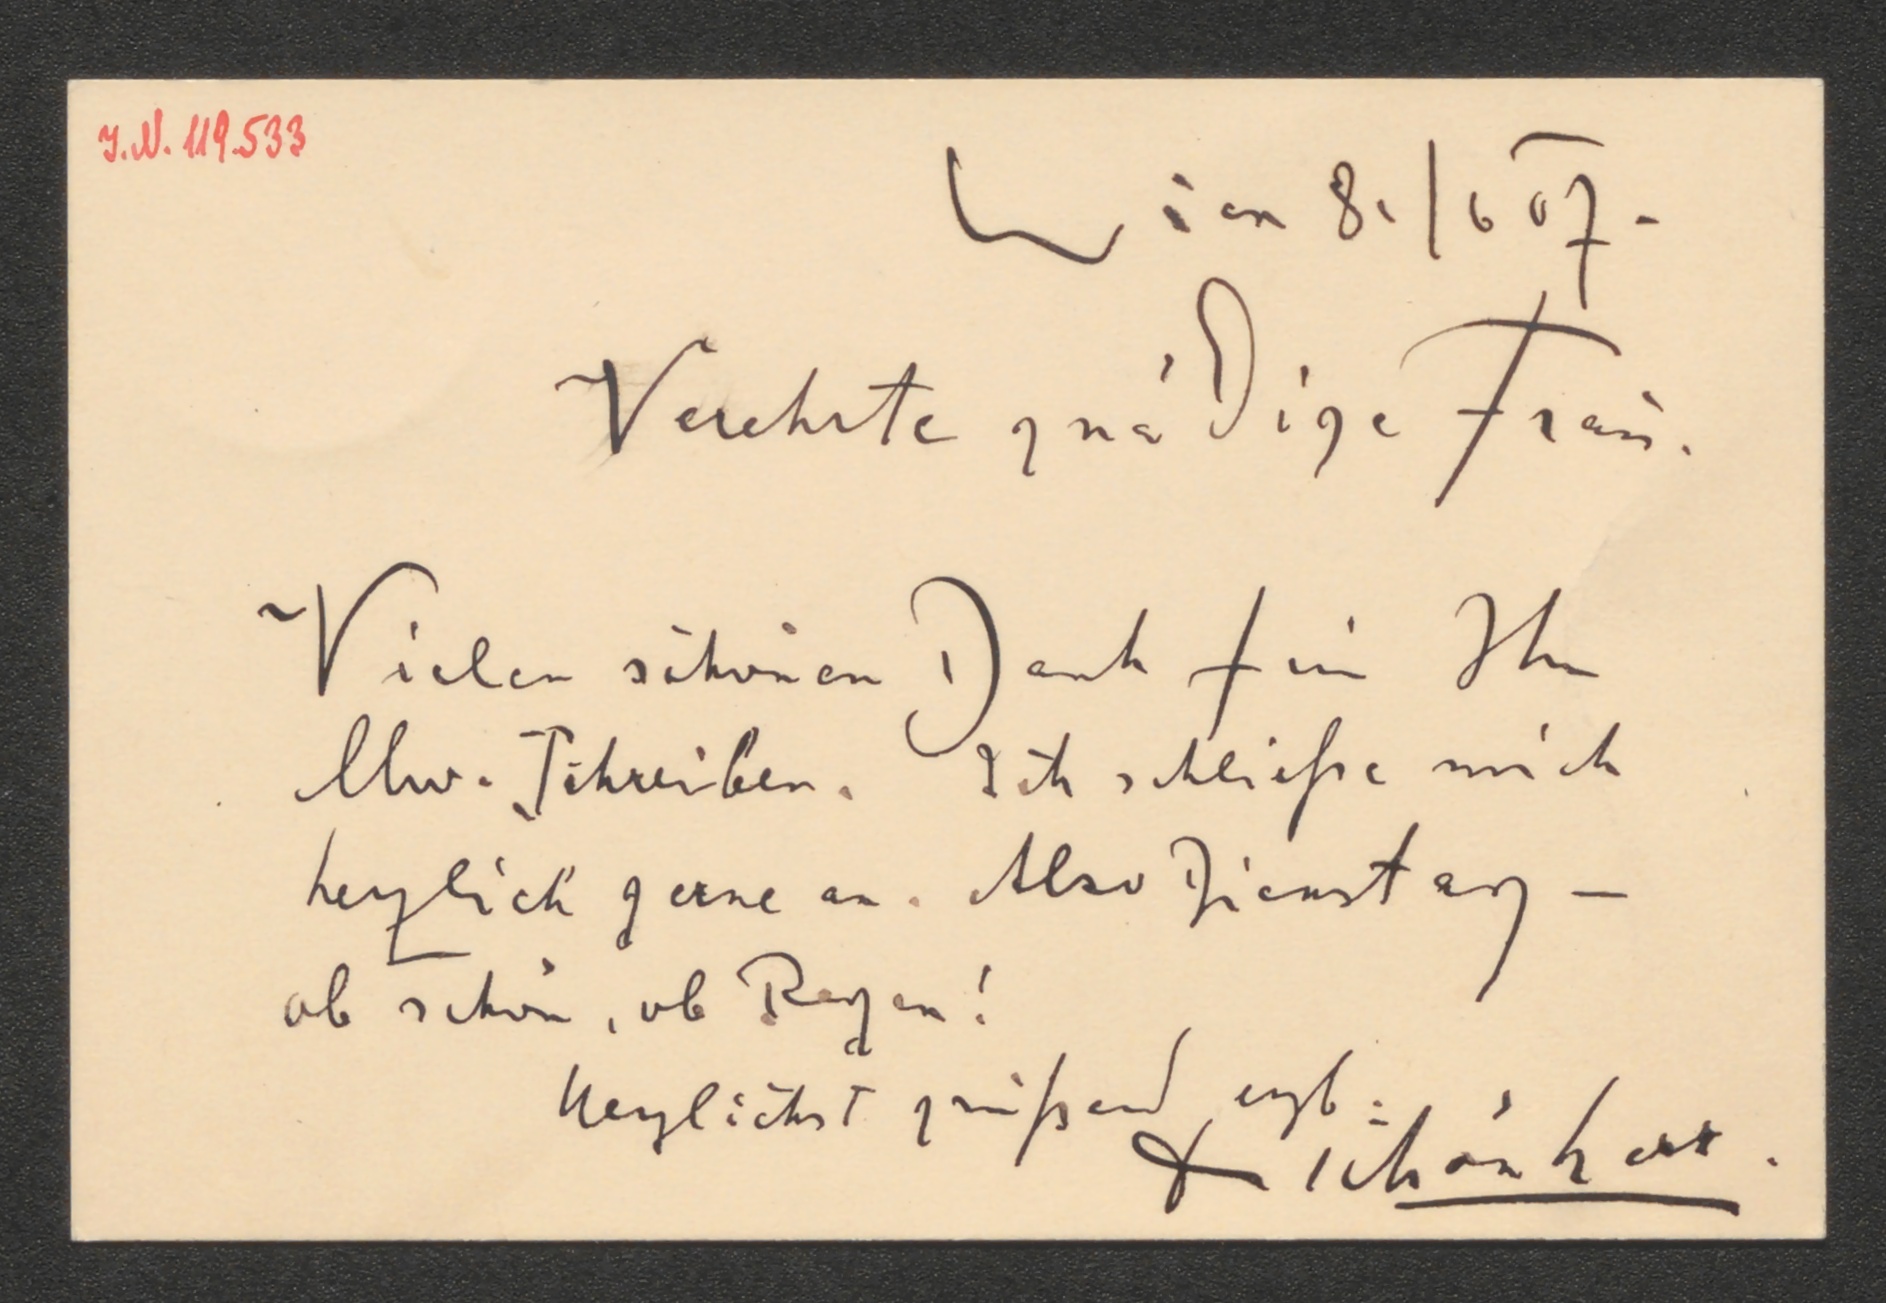 J.N. 119.533
Wien 8./6 07.
Verehrte gnädige Frau.
Vielen schönen Dank für Ihr
lbw. Schreiben. Ich schließe mich
herzlich gerne an. Also Dienstag –
ob schön, ob Regen!
Herzlichst grüßend ergb.
K Schönherr.